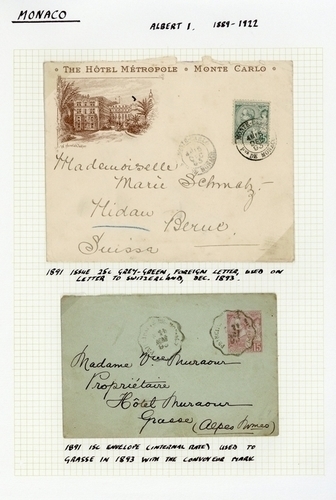 MONACO
ALBERT I. 1889-1922
THE HÔTEL MÉTROPOLE · MONTE CARLO
Mademoiselle
Marie Schmalz
Nidau
Berne
Suissa
1891 ISSUE 25c GREY-GREEN, FOREIGN LETTER, USED ON
LETTER TO SWITZERLAND, DEC. 1893.
Madame Vve Muraour
Propriétaire
Hôtel Muraour
Grasse (Alpes Mmes)
1891 15c ENVELOPE (INTERNAL RATE) USED TO
GRASSE IN 1893 WITH THE CONVOYEUR MARK